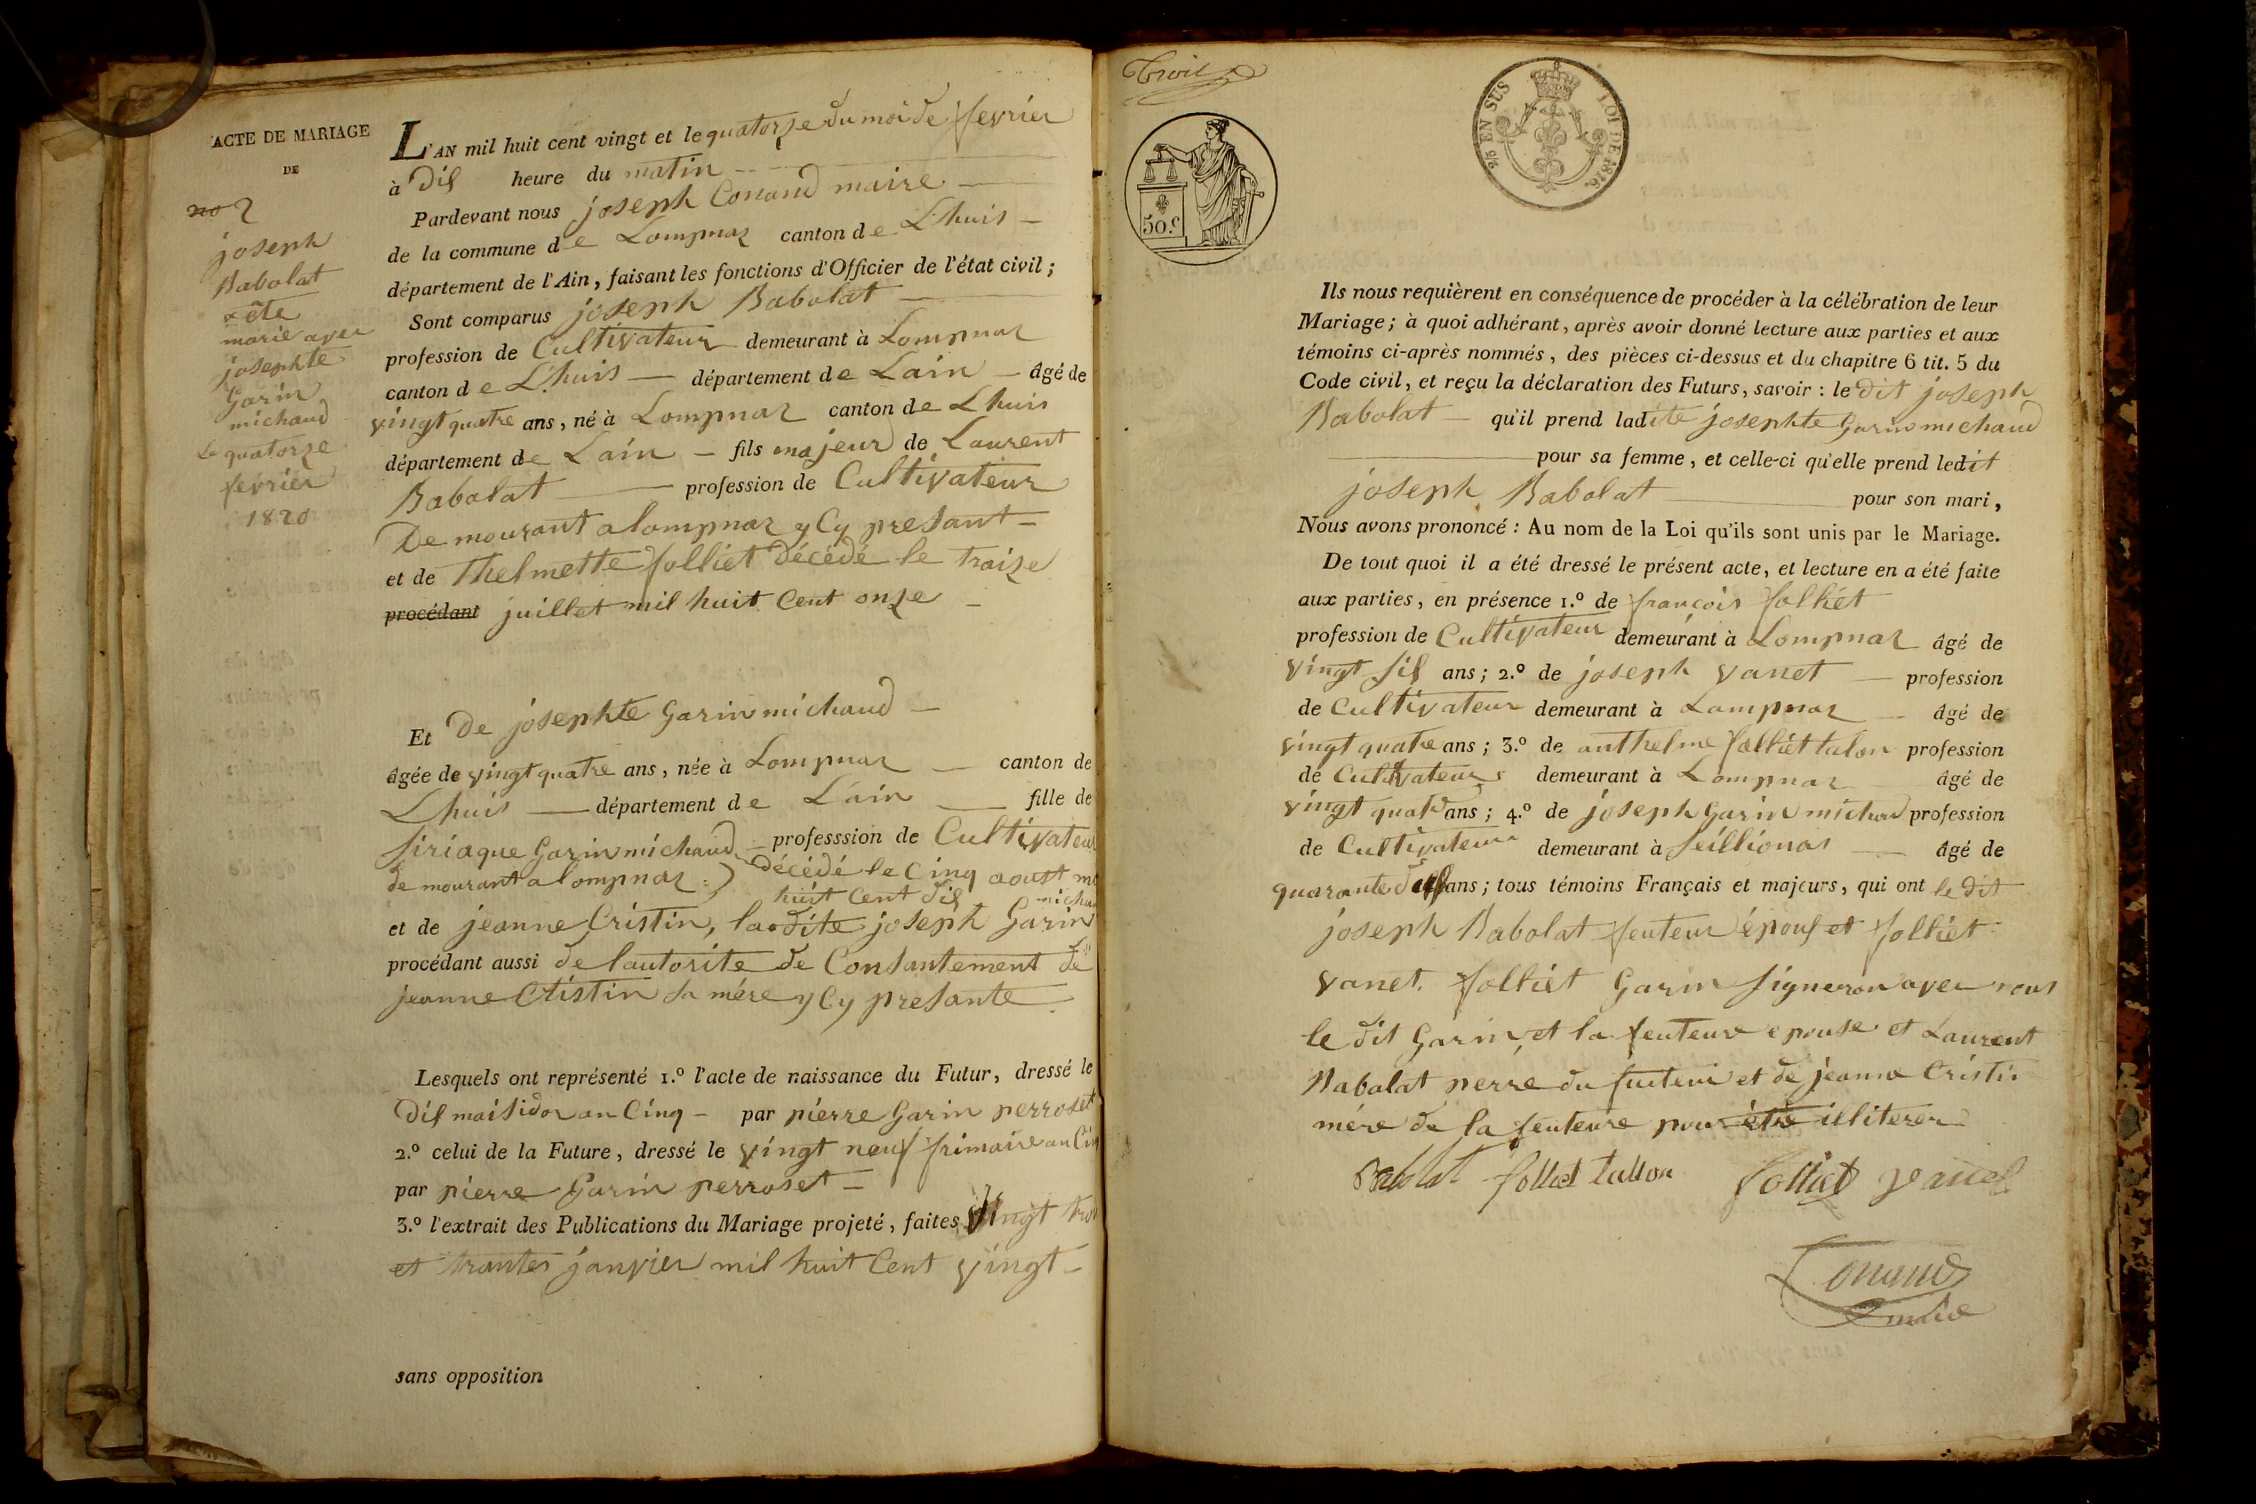 ACTE DE MARIAGE
DE
no 2
joseph
Babolat
a été
marié avec
josephte
Garin
michaud
le quatorze
fevrier
1820
L'AN mil huit cent vingt et le quatorze du moi de fevrier
à Dis heure du matin
Pardevant nous joseph Conand maire
de la commune de Lompnaz canton de L'huis
département de l'Ain, faisant les fonctions d'Officier de l'état civil;
Sont comparus joseph Babolat
profession de Cultivateur demeurant à Lompnaz
canton de L'huis département de Lain âgé de
vingt quatre ans, né à Lompnaz canton de Lhuis
département de Lain fils majeur de Laurent
Babolat profession de Cultivateur
De mourant a lompnaz y Cy presant
et de Thelmette folliet décédé le traize
procédant juillet mil huit Cent onze
Et De josephte Garin michaud
âgée de vingt quatre ans, née à Lompnaz canton de
Lhuis département de Lain fille de
siriaque Garin michaud professsion de Cultivateur
de mourant a lompnaz décédé le Cinq aoust
huit Cent dis
et de jeanne Cristin, la dite joseph Garin
procédant aussi de lautorite de Consantement de
jeanne Cristin sa mére y Cy presante
Lesquels ont représenté 1.º l'acte de naissance du Futur, dressé le
Dis maisidor an Cinq par pierre Garin perroset
2.º celui de la Future, dressé le vingt neuf frimaire an
par pierre Garin perroset
3.º l'extrait des Publications du Mariage projeté, faites vingt
et trantes janvier mil huit Cent vingt
sans opposition
Trois
50.c
25 EN SUS
LOI DE 1816.
Ils nous requièrent en conséquence de procéder à la célébration de leur
Mariage; à quoi adhérant, après avoir donné lecture aux parties et aux
témoins ci-après nommés, des pièces ci-dessus et du chapitre 6 tit. 5 du
Code civil, et reçu la déclaration des Futurs, savoir : le dit joseph
Babolat qu'il prend ladite josephte Garin michaud
pour sa femme, et celle-ci qu'elle prend ledit
joseph Babolat pour son mari,
Nous avons prononcé : Au nom de la Loi qu'ils sont unis par le Mariage.
De tout quoi il a été dressé le présent acte, et lecture en a été faite
aux parties, en présence 1.º de françois folliet
profession de Cultivateur demeurant à Lompnaz âgé de
vingt sis ans; 2.º de joseph vanet profession
de Cultivateur demeurant à Lompnaz âgé de
vingt quatre ans; 3.º de anthelme folliet talon profession
de Cultivateur demeurant à Lompnaz âgé de
vingt quatre ans; 4.º de joseph Garin michau profession
de Cultivateur demeurant à Seillionas âgé de
quarante ans; tous témoins Français et majeurs, qui ont le dit
joseph Babolat feuteur épous et folliet
vanet. folliet Garin signeron avec nous
le dit Garin, et la feuteure epouse et Laurent
Babalat perre du fuiteur et de jeanne Cristin
mére de la feuteure pour être illiterer
Babolat folliet tallon folliet vanet
Conand
maire